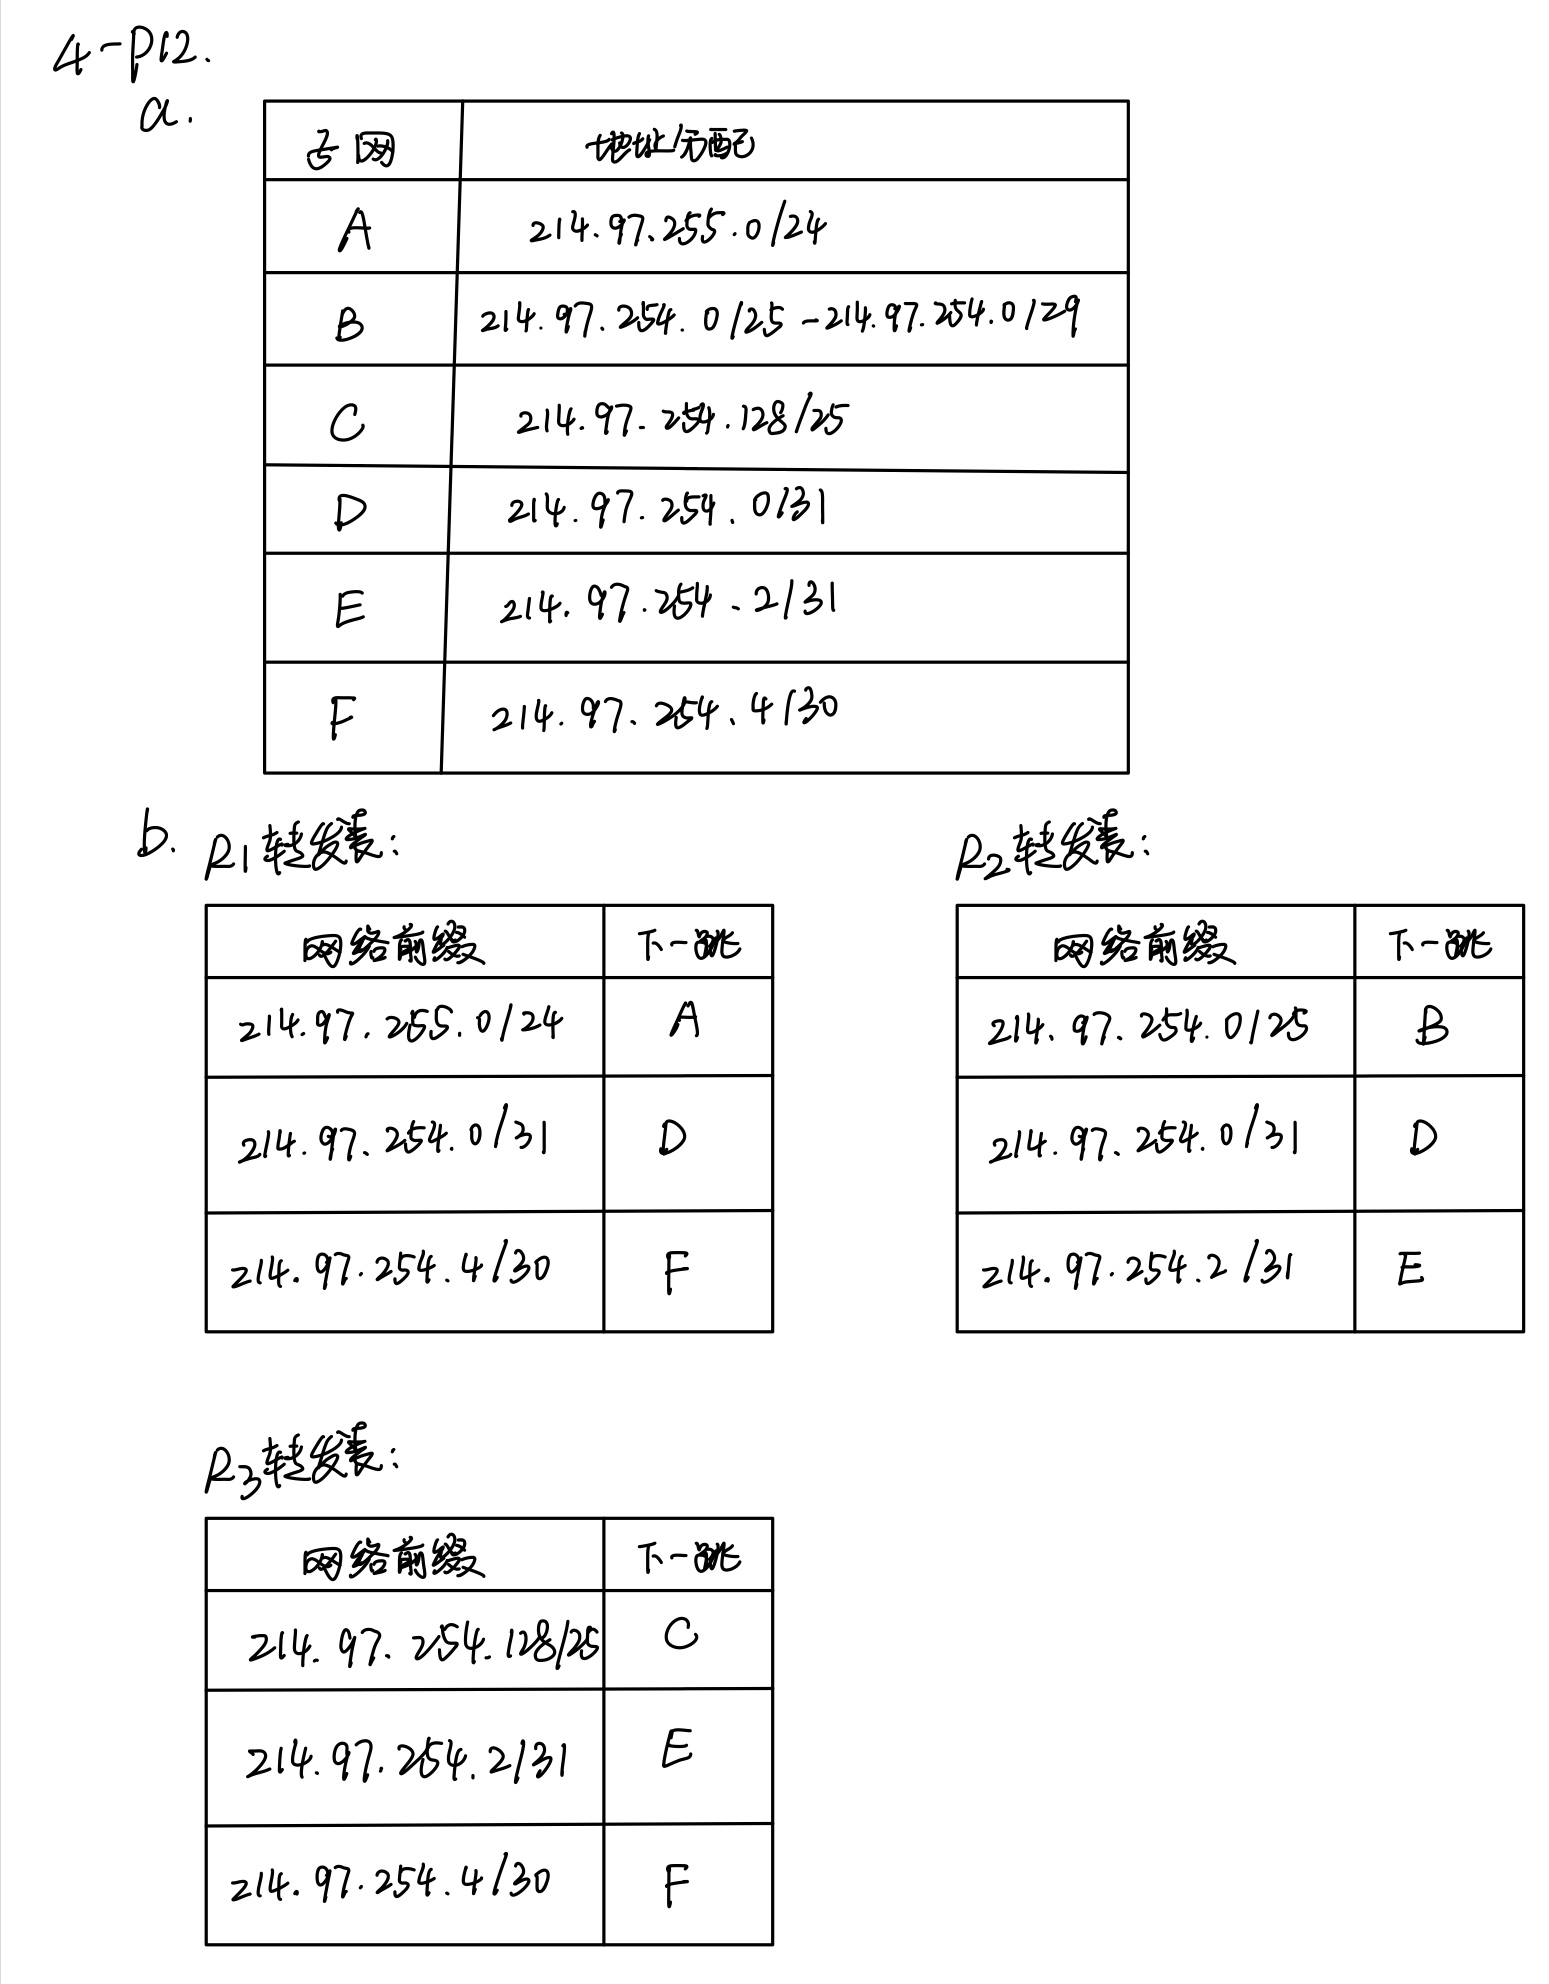 4-P12.
a.
子网 地址分配
A 214.97.255.0/24
B 214.97.254.0/25-214.97.254.0/29
C 214.97.254.128/25
D 214.97.254.0/31
E 214.97.254.2/31
F 214.97.254.4/30
b. R1转发表:
网络前缀 下一跳
214.97.255.0/24 A
214.97.254.0/31 D
214.97.254.4/30 F
R2转发表:
网络前缀 下一跳
214.97.254.0/25 B
214.97.254.0/31 D
214.97.254.2/31 E
R3转发表:
网络前缀 下一跳
214.97.254.128/25 C
214.97.254.2/31 E
214.97.254.4/30 F